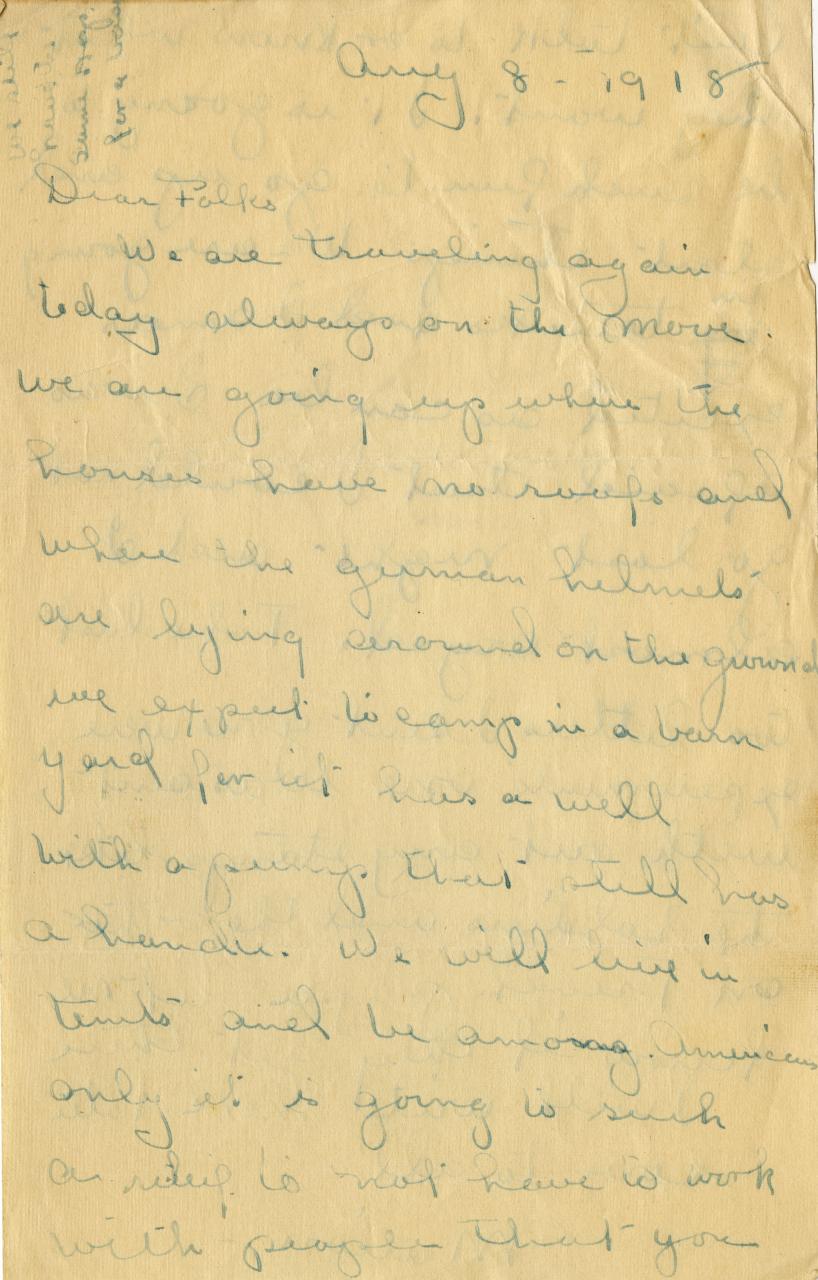 we still
have the
same Hosp.
for a
Aug 8 - 1918
Dear Folks
We are traveling again
today always on the move.
we are going up where the
houses have no roofs and
where the german helmets
are lying around on the ground
we expect to camp in a barn
yard for it has a well
with a pump that still has
a handle. We will live in
tents and be among Americans
only it is going to such
a relief to not have to work
with people that you